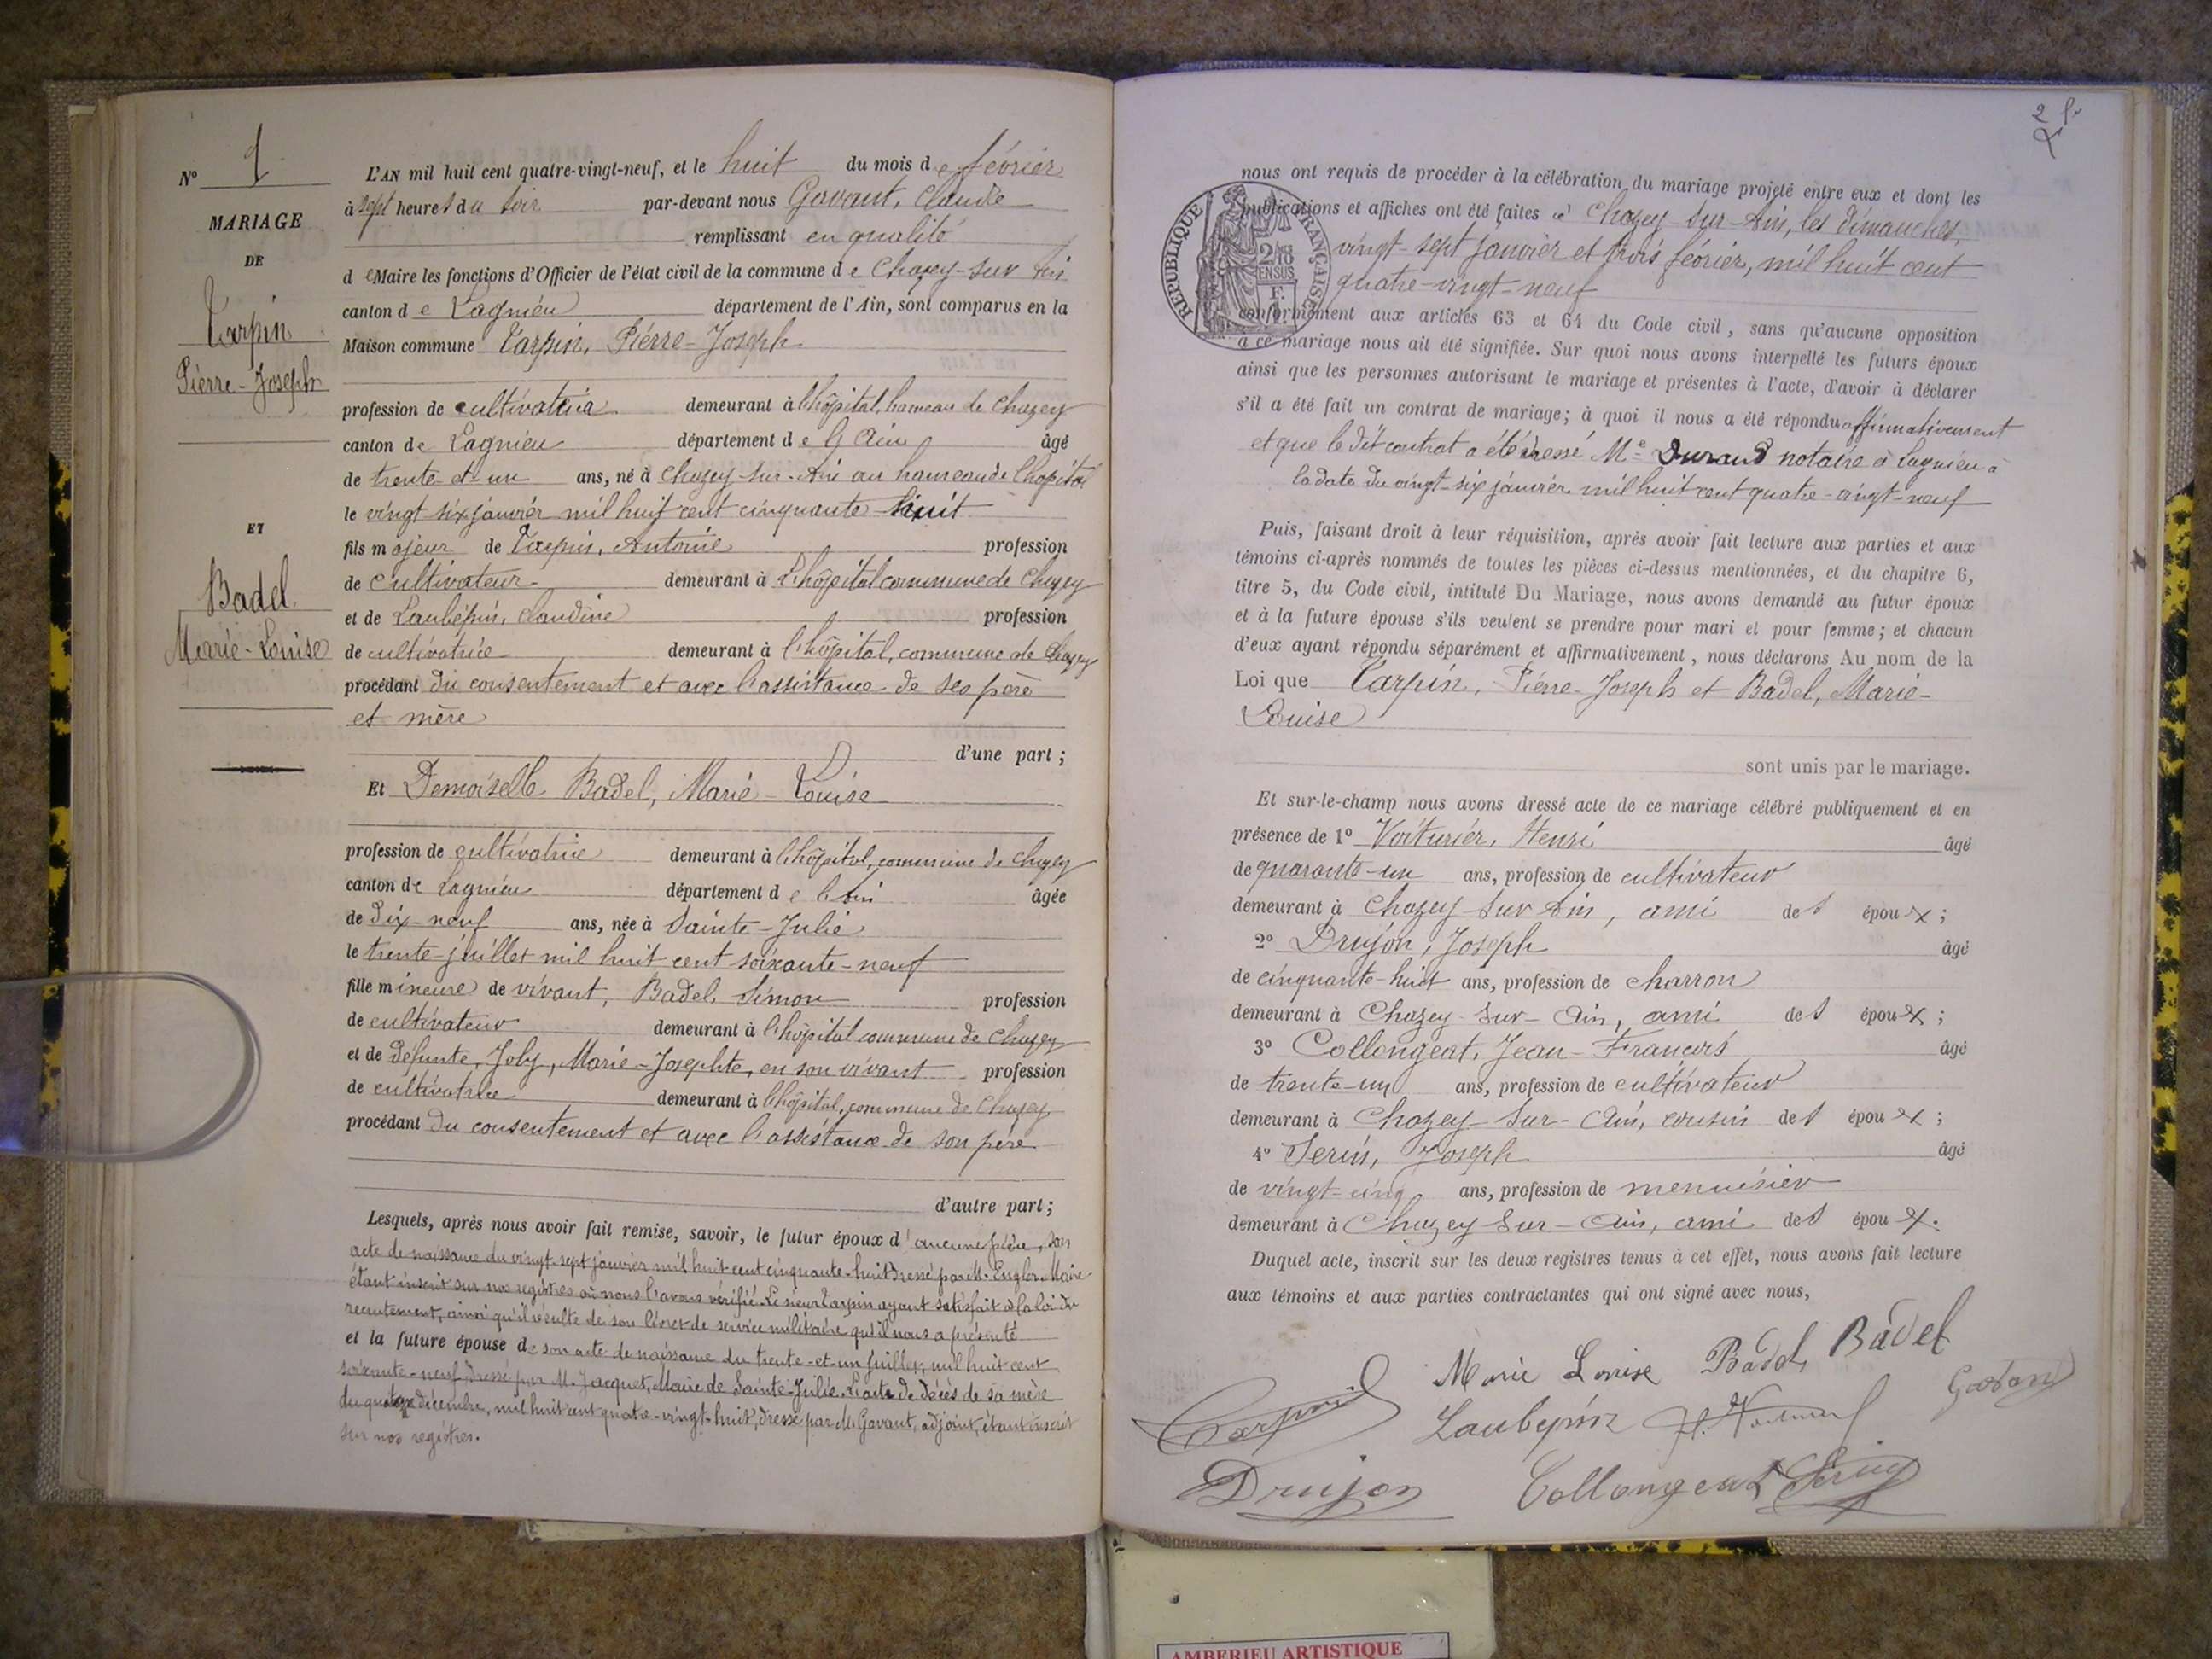 N° 1
MARIAGE
DE
Tarpin
Pierre-Joseph
ET
Badel
Marie-Louise
L'AN mil huit cent quatre-vingt-neuf, et le huit du mois de février
à sept heures du soir par-devant nous Gavant, Claude
remplissant en qualité
de Maire les fonctions d'Officier de l'état civil de la commune de Chazey-sur Ain
canton de Lagnieu département de l'Ain, sont comparus en la
Maison commune Tarpin, Pierre-Joseph
profession de cultivateur demeurant à l'hôpital, hameau de Chazey
canton de Lagnieu département de l'Ain âgé
de trente et un ans, né à Chazey-sur-Ain au hameau de l'hopital
le vingt six janvier mil huit cent cinquante huit
fils majeur de Tarpin, Antoine profession
de cultivateur demeurant à l'hôpital commune de Chazey
et de Laubépin, Claudine profession
de cultivatrice demeurant à l'hôpital, commune de Chazey
procédant du consentement et avec l'assistance de ses père
et mère
d'une part ;
Et Demoiselle Badel, Marie-Louise
profession de cultivatrice demeurant à l'hôpital, commune de Chazey
canton de Lagnieu département de l'Ain âgée
de dix-neuf ans, née à Sainte-Julie
le trente juillet mil huit cent soixante-neuf
fille mineure de vivant, Badel, Simon profession
de cultivateur demeurant à l'hôpital commune de Chazey
et de défunte, Joly, Marie-Josephte, en son vivant profession
de cultivatrice demeurant à l'hôpital, commune de Chazey
procédant du consentement et avec l'assistance de son père
d'autre part ;
Lesquels, après nous avoir fait remise, savoir, le futur époux d'aucune pièce, son
acte de naissance du vingt-sept janvier mil huit cent cinquante-huit dressé par M. Engler Maire
étant inscrit sur nos registres où nous l'avons vérifié. Le sieur Tarpin ayant satisfait à la loi du
recrutement, ainsi qu'il résulte de son livret de service militaire qu'il nous a présenté
et la future épouse de son acte de naissance du trente-et-un juillet, mil huit cent
soixante-neuf, dressé par M. Jacquet, Maire de Sainte-Julie. L'acte de décès de sa mère
du décembre, mil huit cent quatre-vingt-huit, dressé par M. Gavant, adjoint, étant inscrit
sur nos registres.
2
nous ont requis de procéder à la célébration du mariage projeté entre eux et dont les
publications et affiches ont été faites à Chazey-sur-Ain, les dimanches,
vingt-sept janvier et trois février, mil huit cent
quatre-vingt-neuf
RÉPUBLIQUE FRANÇAISE
2/10
EN SUS
F.
conformément aux articles 63 et 64 du Code civil, sans qu'aucune opposition
à ce mariage nous ait été signifiée. Sur quoi nous avons interpellé les futurs époux
ainsi que les personnes autorisant le mariage et présentes à l'acte, d'avoir à déclarer
s'il a été fait un contrat de mariage; à quoi il nous a été répondu affirmativement
et que le dit contrat a été dressé Me Durand notaire à Lagnieu à
la date du vingt-six janvier mil huit cent quatre-vingt-neuf
Puis, faisant droit à leur réquisition, après avoir fait lecture aux parties et aux
témoins ci-après nommés de toutes les pièces ci-dessus mentionnées, et du chapitre 6,
titre 5, du Code civil, intitulé Du Mariage, nous avons demandé au futur époux
et à la future épouse s'ils veulent se prendre pour mari et pour femme ; et chacun
d'eux ayant répondu séparément et affirmativement, nous déclarons Au nom de la
Loi que Tarpin, Pierre-Joseph et Badel, Marie-
Louise
sont unis par le mariage.
Et sur-le-champ nous avons dressé acte de ce mariage célébré publiquement et en
présence de 1° Voiturier, Henri âgé
de quarante-un ans, profession de cultivateur
demeurant à Chazey-sur Ain, ami des époux ;
2° Drujon, Joseph âgé
de cinquante-huit ans, profession de charron
demeurant à Chazey-sur-Ain, ami des époux ;
3° Collongeat, Jean-François âgé
de trente-un ans, profession de cultivateur
demeurant à Chazey-sur-Ain, cousin des époux ;
4° Serin, Joseph âgé
de vingt-cinq ans, profession de menuisier
demeurant à Chazey sur-Ain, ami des époux.
Duquel acte, inscrit sur les deux registres tenus à cet effet, nous avons fait lecture
aux témoins et aux parties contractantes qui ont signé avec nous,
Marie Louise Badel Badel
Tarpin Laubepin H. Voiturier Gavant
Drujon Collongeat Serin
AMBERIEU ARTISTIQUE